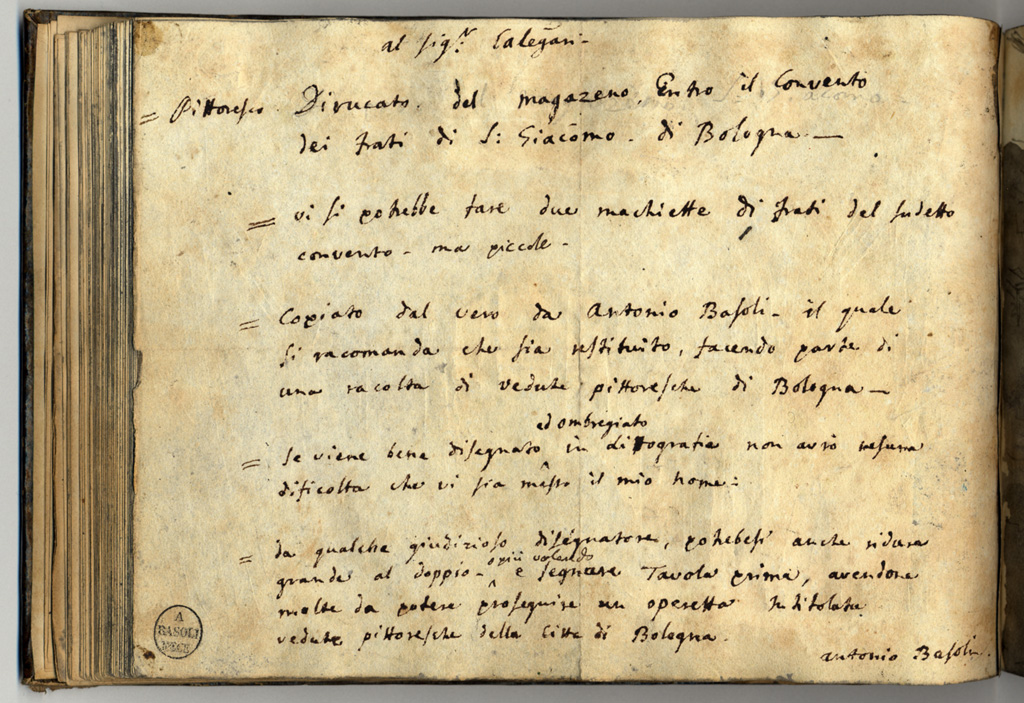 al Sig.r Calegari -
= Pittoresco Dirucato. del magazeno. Entro il Convento
dei frati di S: Giacomo. di Bologna —
= vi si potrebbe fare due machiette di frati del sudetto
convento - ma piccole -
= Copiato dal vero da Antonio Basoli - il quale
si racomanda che sia restituito, facendo parte di
una racolta di vedute pittoresche di Bologna —
ed ombregiato
= Se viene bene disegnato in litografia non avrò nesuna
dificolta che vi sia messo il mio nome:
= da qualche giudizioso disegnatore, potrebesi anche ridure
o più volendo
grande al doppio - e segnare Tavola prima, avendone
molte da potere proseguire un operetta Intitolata
vedute pittoresche della Citta di Bologna.
antonio Basoli.
A
BASOLI
FECE